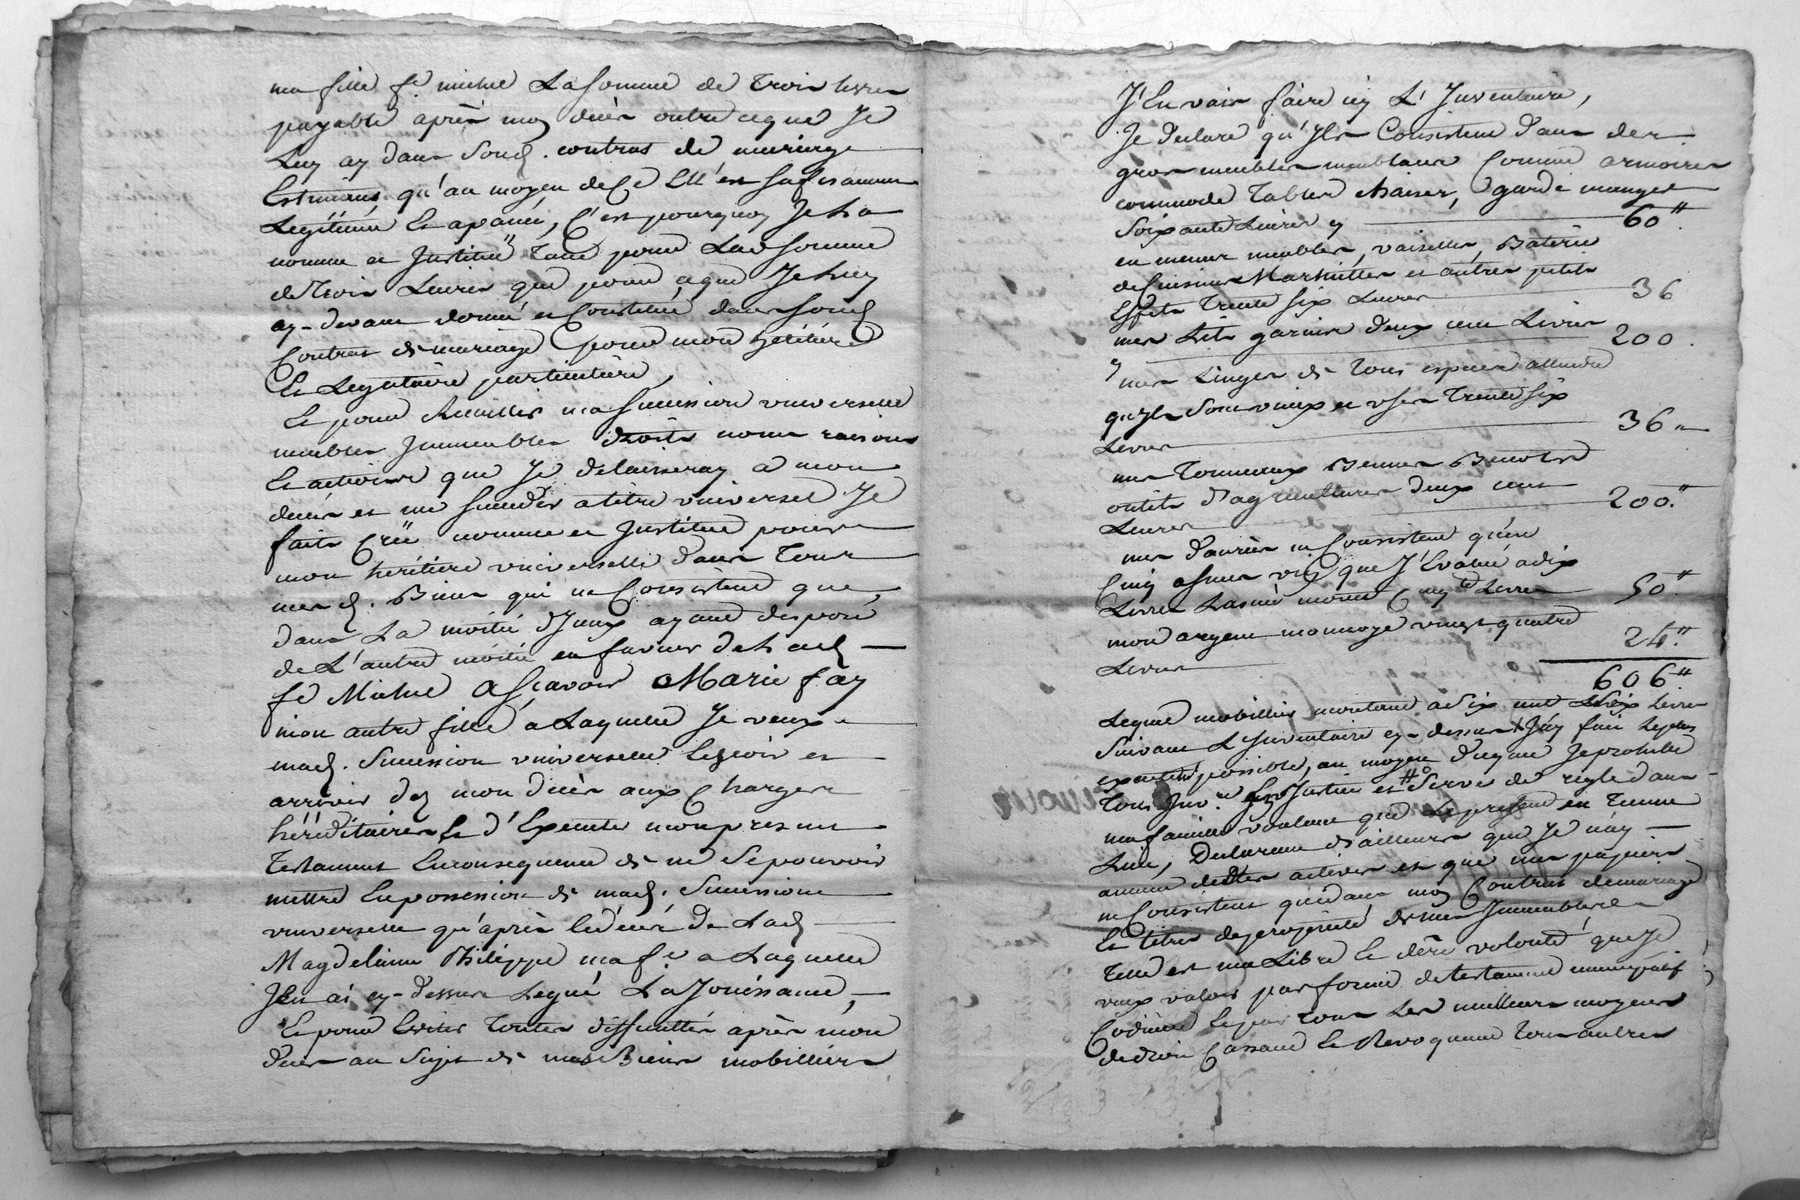 ma fille fe michel La Somme de trois livres
payable après mon décès outre ce que Je
Luy ay dans Sond. contrat de mariage
Estimant qu'au moyen de Ce Ell'est Sufisament
Legitimée Et apanée, C'est pourquoy Je La
nomme et Jnstitue Tant pour Lad Somme
de trois Livres que pour ce que Je Luy
ay-devant donné et Constitué dans Sond
Contrat de mariage pour mon héritière
Et Legataire particulière,
Et pour Recuillir ma Succession universelle
meubles Jmmeubles droits noms raisons
Et actions que Je delaisseray a mon
décès et me Succeder a titre universel Je
fait Créé nomme et Jnstitue pour
mon héritière universelle dans Tous
mesd. Biens qui ne Consistent que
dans La moitié d'Jceux ayant disposé
de L'autre moitié en faveur de Lad
fe Michel a Sçavoir Marie fay
mon autre fille a Laquelle Je veux
mad. Succession universelle Echoir et
arriver dez mon décès aux Charges
héréditaires Et d'Executer mon present
Testament En consequence de ne Se pouvoir
mettre En possession de mad. Succession
universelle qu'après le décès de Lad
Magdelaine Philippe ma fe a Laquelle
J'En ai cy-dessus Legué La Jouissance,
Et pour Eviter Toutes difficultés après mon
décès au Sujet de mes Biens mobilliers
J'En vais faire icy L'Jnventaire,
Je declare qu'Jls Consistent dans des
gros meubles meublans Comme armoires
commode Tables chaises, garde manger
Soixante Livres cy 60"
en menus meubles, vaiselle, Baterie
de Cuisine Marmittes et autres petits
Effets Trente Six Livres 36
mes Lits garnis deux cent Livres
cy 200.
mes Linges de Tous especes attendu
qu'Jls Sont vieux et usés Trente Six
Livres 36
mes Tonneaux Bennes
outils d'agriculture deux cent
Livres 200"
mes danrées ne Consistent qu'en
Cinq asnées vin que J'Evalue a dix
Livres L'asnée montent Cinqte Livres 50"
mon argent monnoyé vingt quatre
Livres 24"
606"
Lequel mobillier montant a Six cent Six Livres
Suivant L'Jnventaire cy-dessus J'ay fait Le plus
exactement possible, au moyen duquel Je prohibe
Tous Jnv.re Justice et Servir de regle dans
ma famille voulant que Le present en Tienne
Lieu, Declarant d'ailleurs que Je n'ay
aucune dettes actives et que mes papiers
ne Consistent qu'en dans mon Contrat de mariage
Et titres de proprieté de mes Jmmeubles
Telle est ma Libre Et dère volonté que Je
veux valoir par forme de testament nuncupatif
Codicile Et par Tous Les meilleurs moyens
de droit Cassant Et Revoquant Tous autres